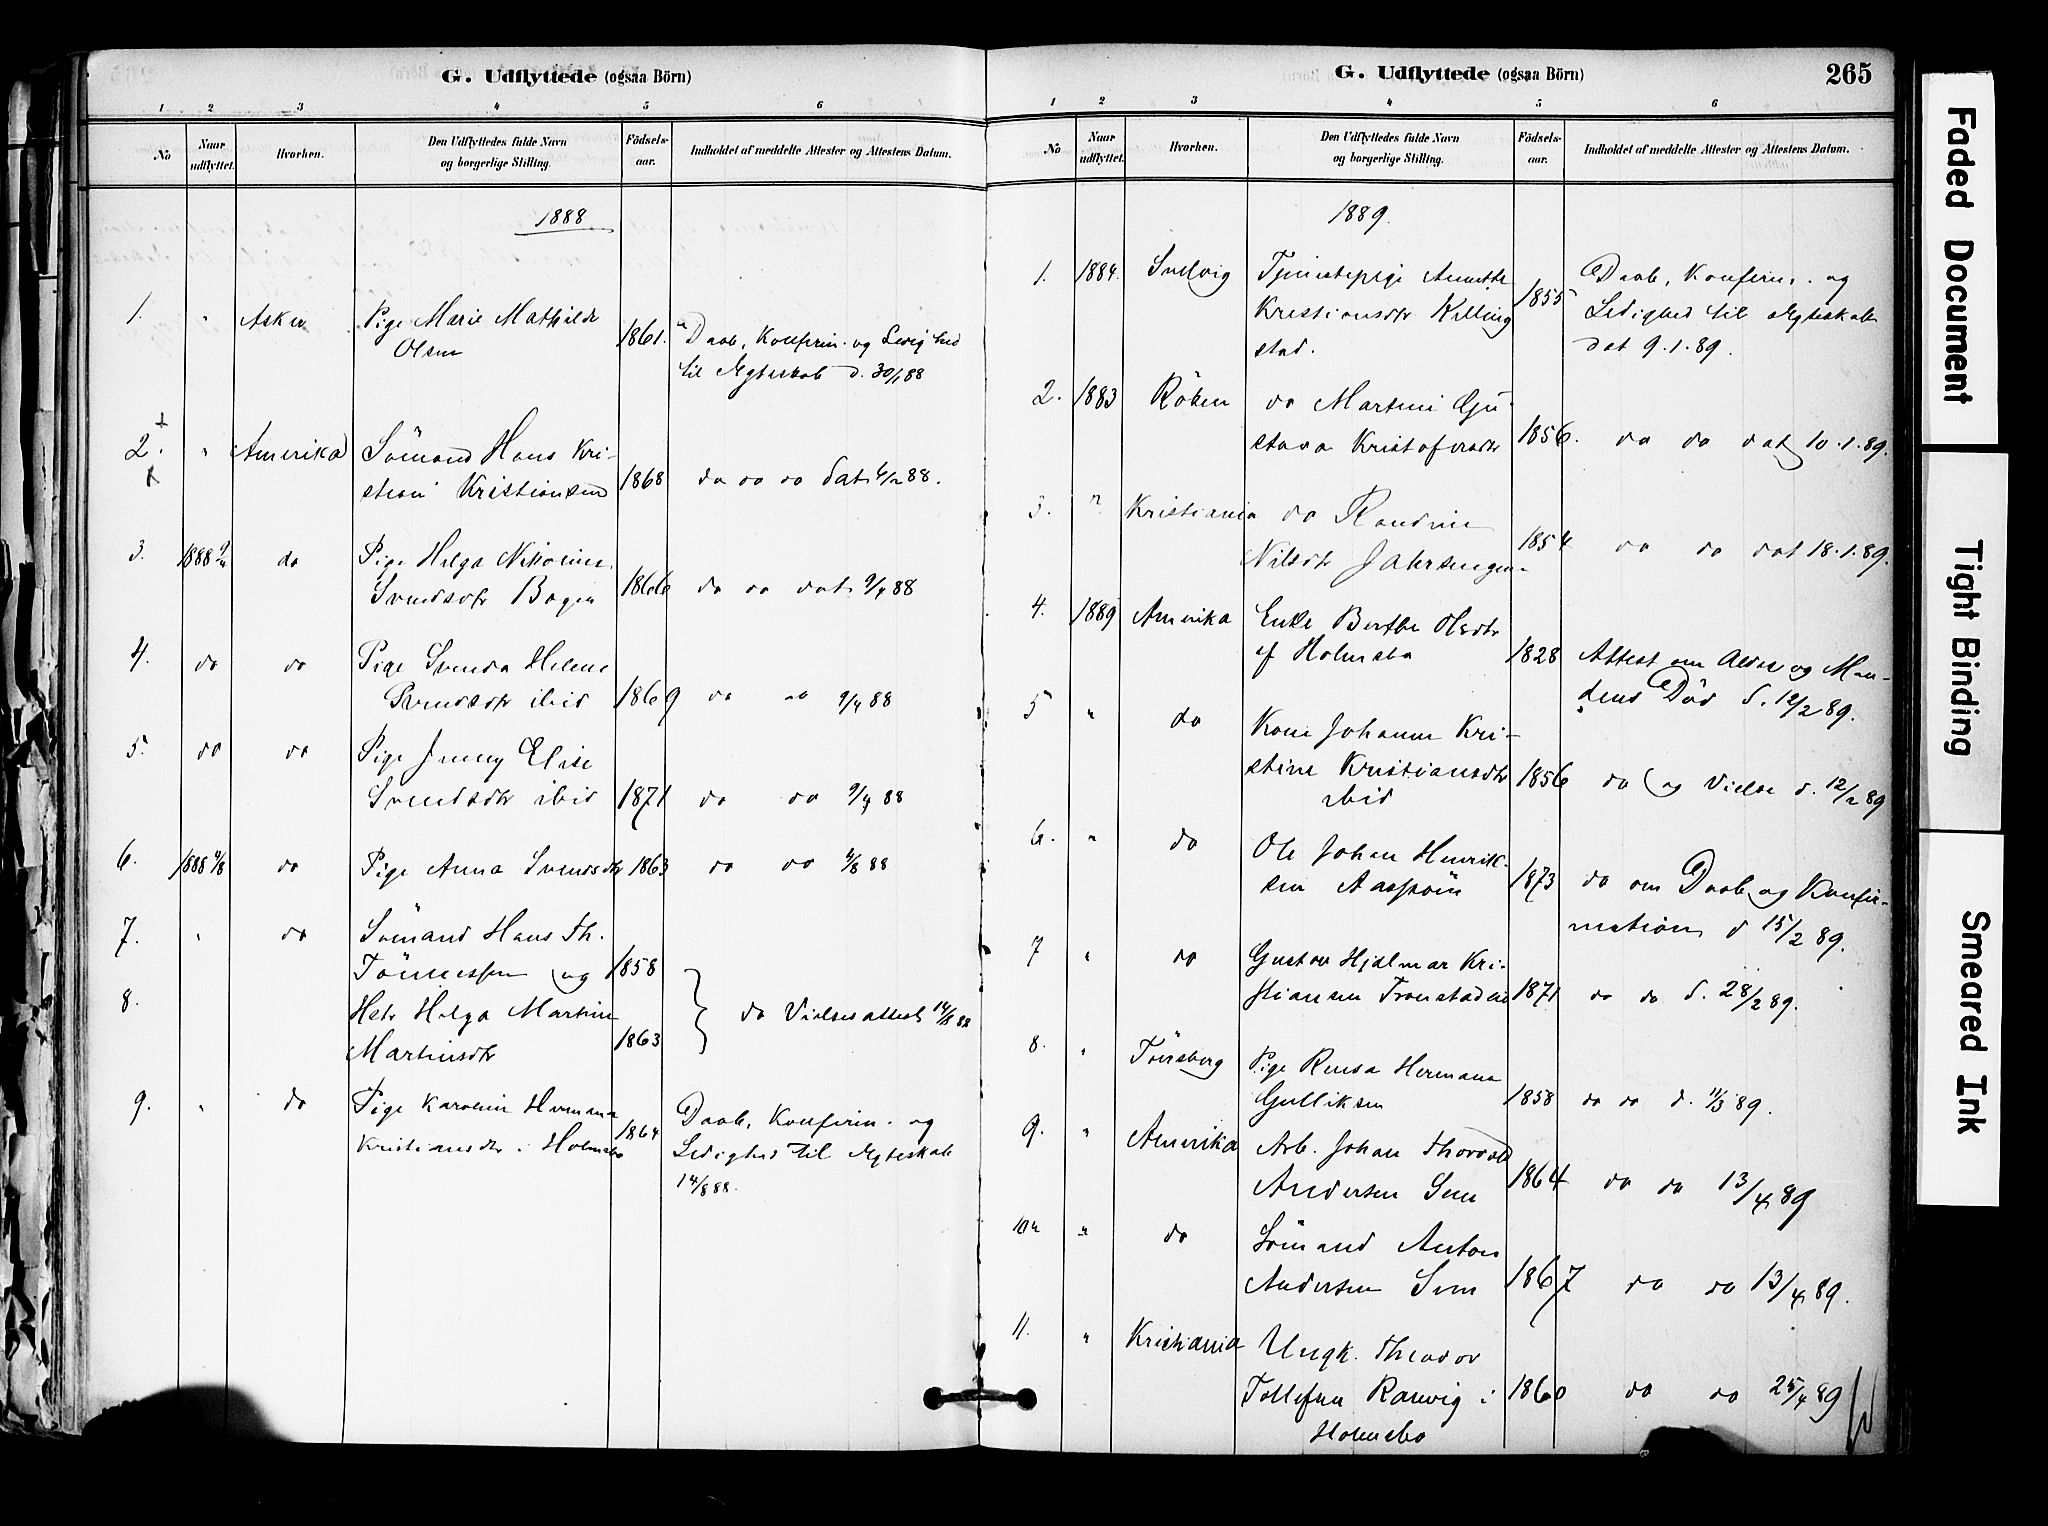 G. Udflyttede (ogsaa Börn)
1 2 3 4 5 6
No
Naar udflyttet.
Hvorhen.
Den Udflyttedes fulde Navn
og borgerlige Stilling.
Födsels-
aar.
Indholdet af meddelte Attester og Attestens Datum.
1888
1. " Asker Pige Marie Mathilde
Olsen 1861. Daab, Konfirm. og Ledighed
til Ægteskab d. 30/1 88
2. " Amerika Sömand Hans Kri-
stian Kristiansen 1868 do do do dat 4/2 88.
3. 1888 9/4 do Pige Helga Nikoline
Svendsdtr Bogen 1866 do do dat 9/4 88
4. do do Pige Svenda Helene
Svendsdtr ibid 1869 do do 9/4 88
5. do do Pige Jenny Elise
Svendsdtr ibid 1871 do do 9/4 88
6. 1888 4/8 do Pige Anna Svendsdtr 1863 do do 4/8 88
7. " do Sömand Hans Th.
Tönnessen og 1858
8. Hstr Helga Martine
Martinsdtr 1863 do Vielsesattest 14/8 88
9. " do Pige Karoline Hermana
Kristiansdtr i Holmsbo 1864 Daab, Konfirm. og
Ledighed til Ægteskab
14/8 88.
G. Udflyttede (ogsaa Börn)
265
1 2 3 4 5 6
No
Naar udflyttet.
Hvorhen.
Den Udflyttedes fulde Navn
og borgerlige Stilling.
Födsels-
aar.
Indholdet af meddelte Attester og Attestens Datum.
1889.
1. 1884. Svelvig Tjenestepige Annette
Kristiansdtr Killing
stad. 1855 Daab, Konfirm. og
Ledighed til Ægteskab
dat 9.1.89.
2. 1883 Röken do Martine Gu-
stava Kristofersdtr 1856. do do dat 10.1.89.
3. " Kristiania do Randine
Nilsdtr Jahrsengen 1854 do do dat 18.1.89.
4. 1889 Amerika Enke Berthe Olsdtr
af Holmsbo 1828 Attest om Alder og Man-
dens Död d. 12/2 89.
5 " do Kone Johanne Kri-
stine Kristiansdtr
ibid 1856 do og Vielse d. 12/2 89
6. " do Ole Johan Henrik-
sen Aaspöin 1873 do om Daab og Konfir-
mation d 15/2 89.
7 " do Gustav Hjalmar Kri-
stiansen Tronstadeie 1871 do do d. 28/2 89.
8. " Tönsberg Pige Rensa Hermana
Gulliksen 1858 do do d. 11/3 89.
9. " Amerika Arb. Johan Thorvald
Andersen Sem 1864 do do 13/4 89
10 " do Sömand Anton
Andersen Sem 1867 do do 13/4 89.
11. " Kristiania Ungk. Theodor
Tollefsen Rauvig i
Holmsbo 1860 do do 25/4 89
Faded Document
Tight Binding
Smeared Ink